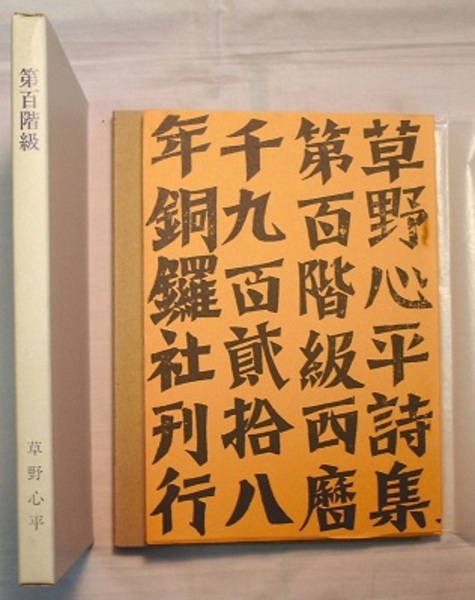 第百階級
草野心平
草野心平詩集
第百階級西暦
千九百貳拾八
年銅鑼社刊行